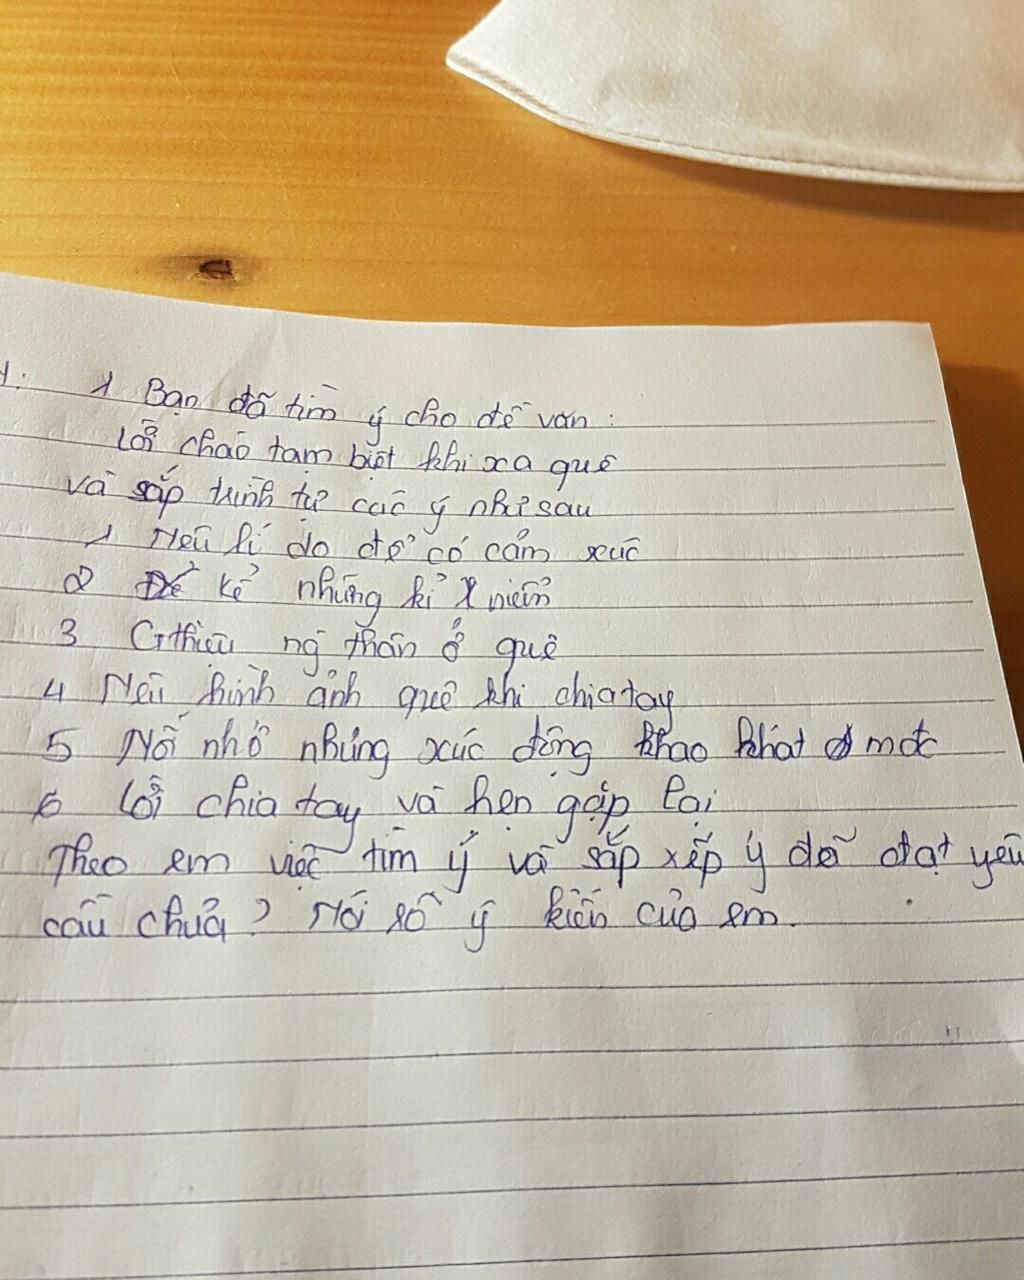 1: 1 Bạn đã tìm ý cho đề văn:
Lời chào tạm biệt khi xa quê
và sắp trình tự các ý như sau
1 Nêu lí do để có cảm xúc
2 kể những kỉ niệm
3 Gthiệu ng thân ở quê
4 Nêu hình ảnh quê khi chia tay
5 Nỗi nhớ những xúc động khao khát
6 Lời chia tay và hẹn gặp lại
Theo em việc tìm ý và sắp xếp ý đã đạt yêu
cầu chưa? Nói rõ ý kiến của em.